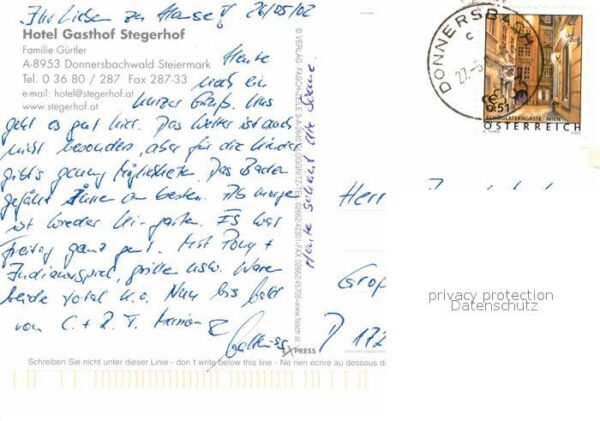 Ihr Lieben zu Hause! 26/05/02
Hotel Gasthof Stegerhof
Familie Gürtler
A-8953 Donnersbachwald Steiermark
Tel. 0 36 80 / 287 Fax 287-33
e-mail: hotel@stegerhof.at
www.stegerhof.at
Heute
noch ein
kurzer Gruß. Uns
geht es gut hier. Das Wetter ist auch
nicht besonders, aber für die Kinder
gibt's genug Möglichkeiten. Das Baden
gefällt ihnen am besten. Ab morgen
ist wieder Ki-garten. Es war
Freitag ganz gut. Mit Pony +
Indianerspiel, grillen usw. Waren
beide total k.o. Nun bis bald
von C. + Z. T.
Heute scheint die Sonne.
© VERLAG
XPRESS
DONNERSBACH
C
27.5
51
SCHÖNLATERNGASSE WIEN
ÖSTERREICH
Herr
Groß
D 172
privacy protection
Datenschutz
Schreiben Sie nicht unter dieser Linie - don't write below this line - Ne rien écrire au dessous d